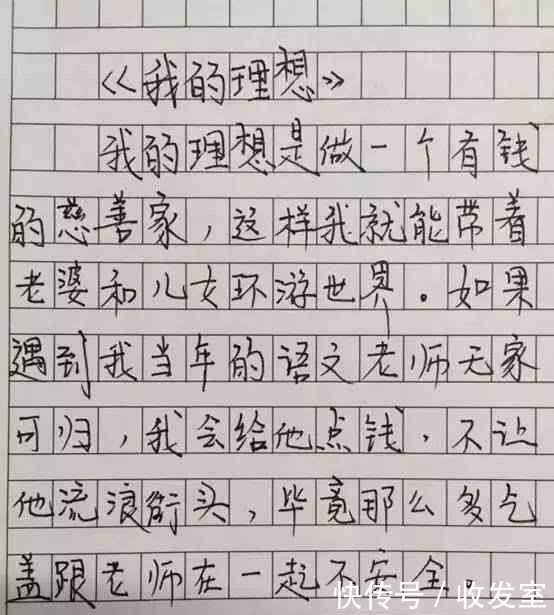 《我的理想》
我的理想是做一个有钱
的慈善家，这样我就能带着
老婆和儿女环游世界。如果
遇到我当年的语文老师无家
可归，我会给他点钱，不让
他流浪街头，毕竟那么多乞
丐跟老师在一起不安全。
快传号／收发室